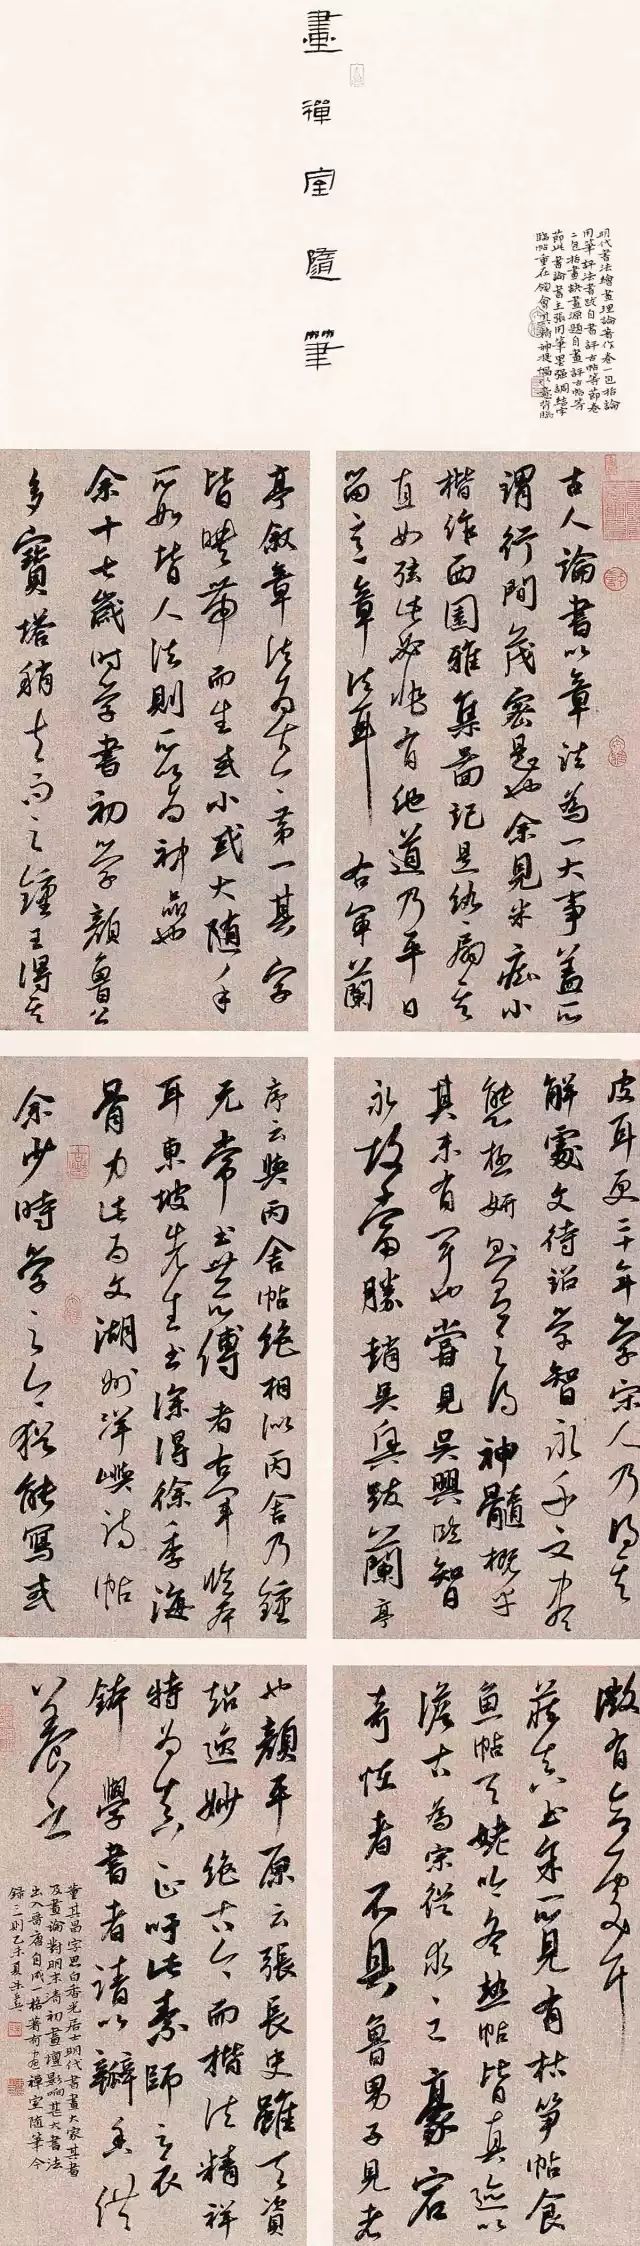 畫禪室隨筆
明代書法繪畫理論著作卷一包括論
用筆評法書跋自書評古帖等節卷
二包括畫訣畫源題自畫評古畫等
節此書論書主張用筆墨強調結字
臨帖重在領會其精神提倡以意背臨
古人論書以章法為一大事蓋所
謂行間茂密是也余見米癡小
楷作西園雅集圖記是紈扇其
直如弦此必非有他道乃平日
留意章法耳 右軍蘭
亭敘章法為古今第一其字
皆映帶而生或小或大隨手
所如皆入法則所以為神品也
余十七歲時學書初學顏魯公
多寶塔稍去而之鍾王得其
皮耳更二十年學宋人乃得其
解處文待詔學智永千文盡
態極妍則有之得神髓概乎
其未有聞也嘗見吳興臨智
永故當勝趙吳興跋蘭亭
序云與丙舍帖絕相似丙舍乃鍾
元常書世所傳者右軍臨本
耳東坡先生書深得徐季海
骨力此為文湖州洋嶼詩帖
余少時學之今猶能寫或
微有合處耳
藏真書余所見有枯筍帖食
魚帖天姥吟冬熱帖皆真跡以
澹古為宗從求之豪宕
奇怪者不具魯男子見者
也顏平原云張長史雖天資
超逸妙絕古今而楷法精詳
特為真正吁此素師之衣
缽 學書者請以瓣香供
養之
董其昌字思白香光居士明代書畫大家其書
及畫論對明末清初畫壇影響甚大書法
出入晉唐自成一格著有畫禪室隨筆今
錄三則乙未夏